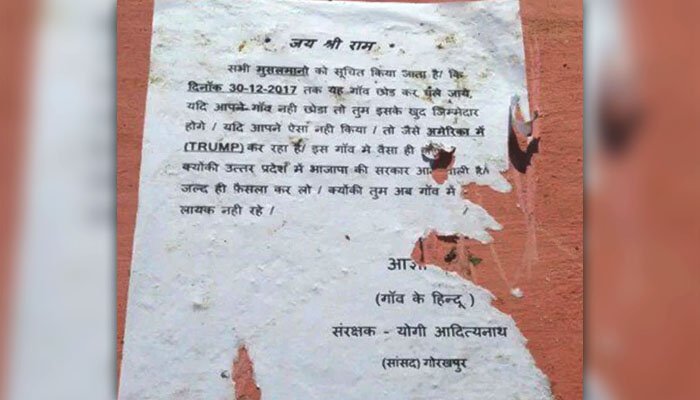 जय श्री राम
सभी मुसलमानो को सूचित किया जाता है/ कि
दिनाँक 30-12-2017 तक यह गाँव छोड कर चले जाये,
यदि आपने गाँव नही छोडा तो तुम इसके खुद जिम्मेदार
होगे / यदि आपने ऐसा नही किया / तो जैसे अमेरिका में
(TRUMP) कर रहा है/ इस गाँव मे वैसा ही
क्योंकी उत्तर प्रदेश में भाजापा की सरकार है/
जल्द ही फ़ैसला कर लो / क्योंकी तुम अब गाँव में
लायक नही रहे / /
(गाँव के हिन्दू )
संरक्षक - योगी आदित्यनाथ
(सांसद) गोरखपुर